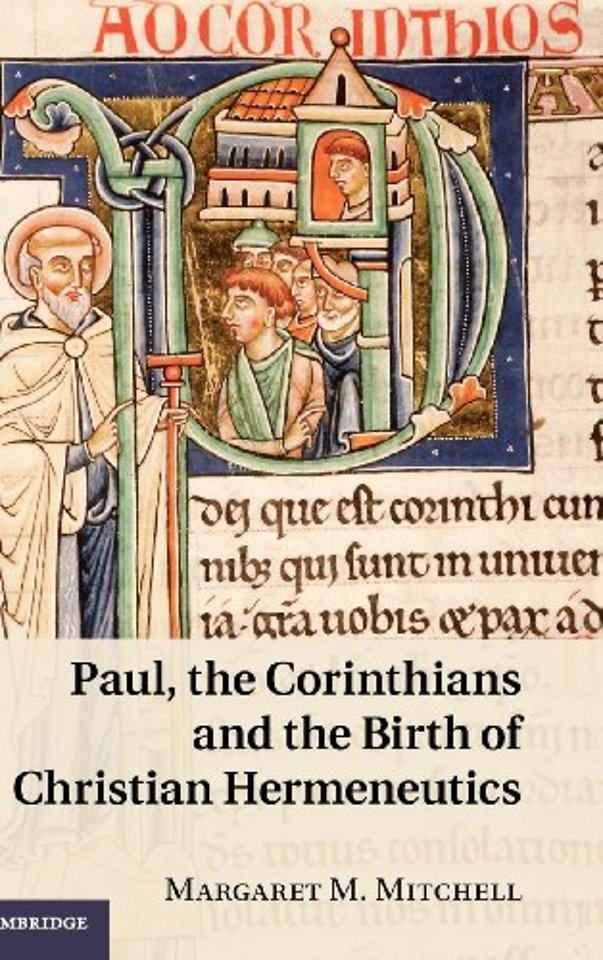 AD COR INTHIOS
AV
dej que est corinthi cum
nibꝫ quj sunt in uniuer
ia. gr̃a uobis & pax a d
Paul, the Corinthians
and the Birth of
Christian Hermeneutics
MARGARET M. MITCHELL
MBRIDGE